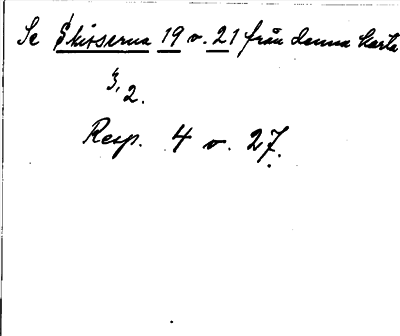 Se Skisserna 19 o. 21 från denna karta
3,
2.
Resp. 4 o. 27.